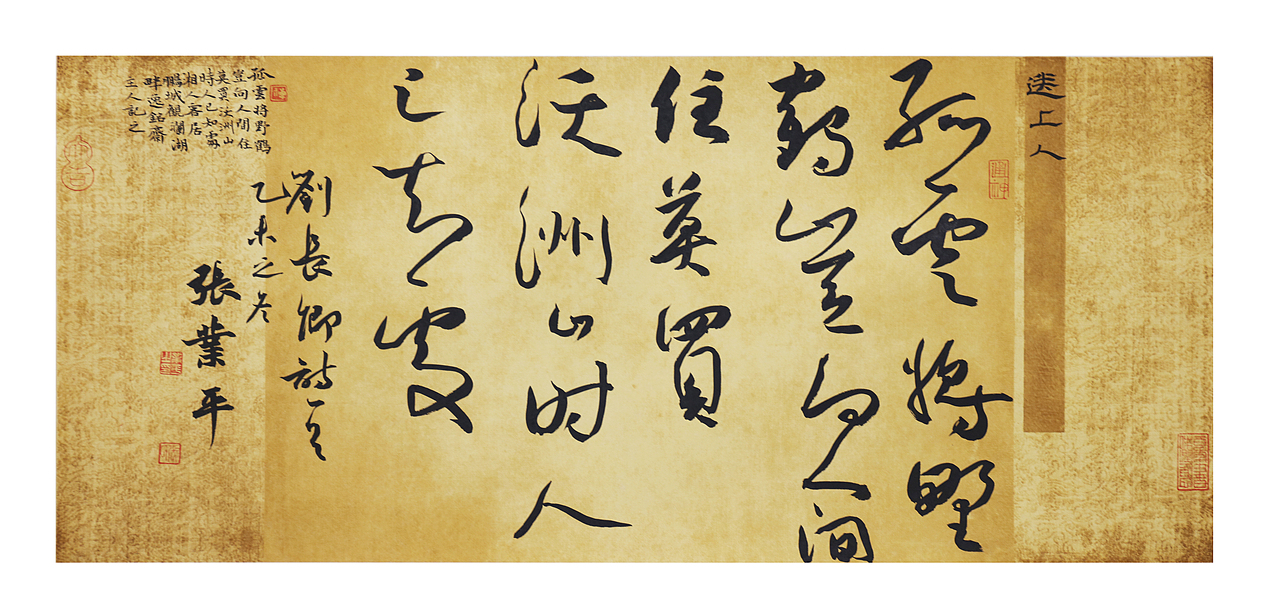 送上人
孤雲將野
鶴豈向人間
住莫買
沃洲山时人
已知處
劉長卿詩一首
乙未之冬
張業平
孤雲将野鶴
豈向人間住
莫買沃洲山
時人已知處
湘人客居
鵬城觀瀾湖
畔逸銘齋
主人記之